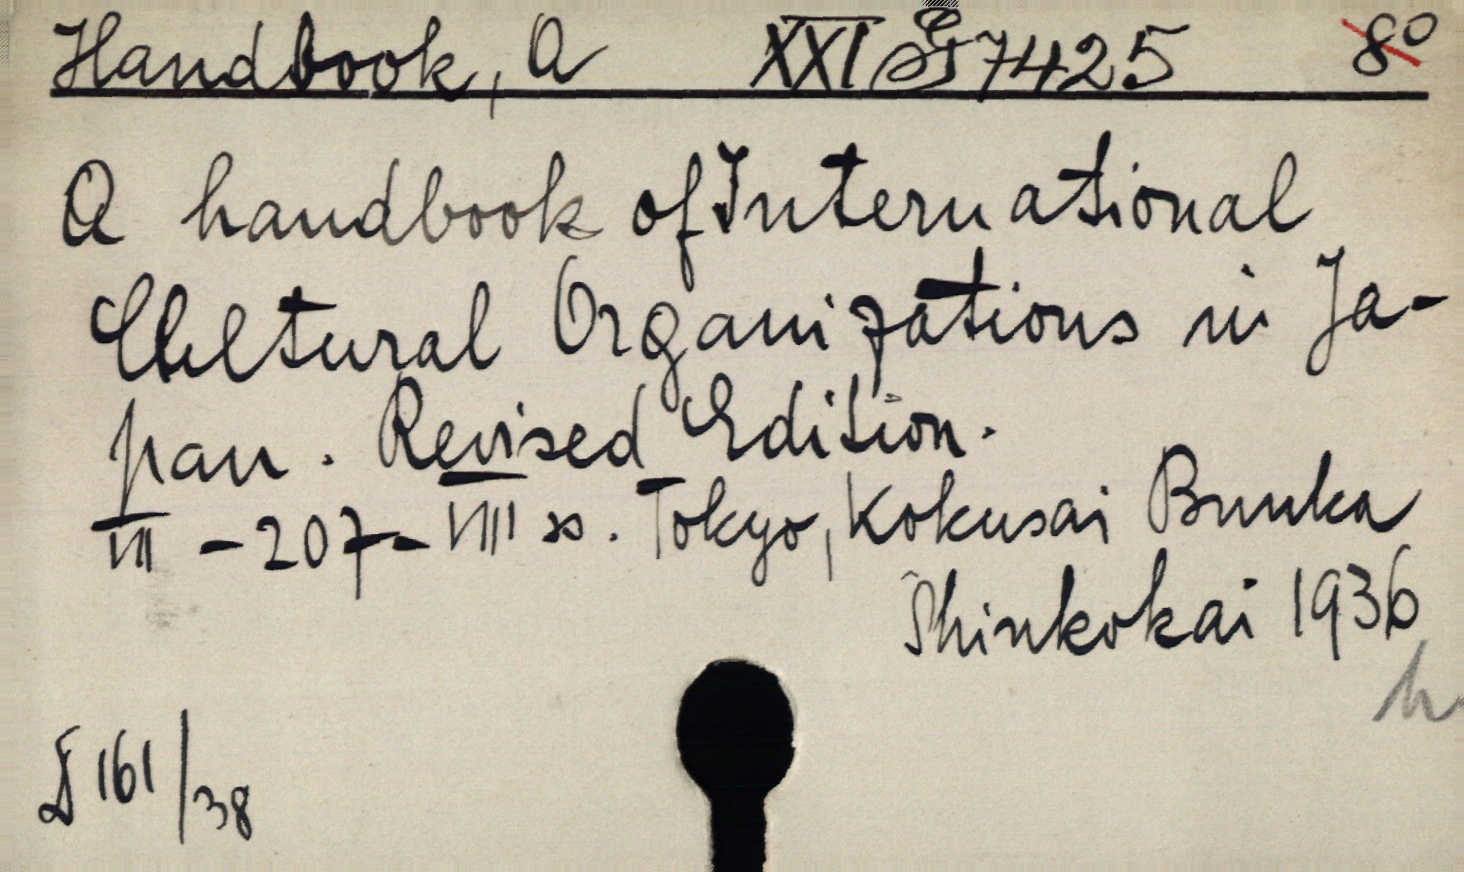 Handbook, A XXI 7425 8°
A handbook of International
Cultural Organizations in Ja-
pan. Revised Edition.
VII - 207 - VIII ss. Tokyo, Kokusai Bunka
Shinkokai 1936
h
D 161/38